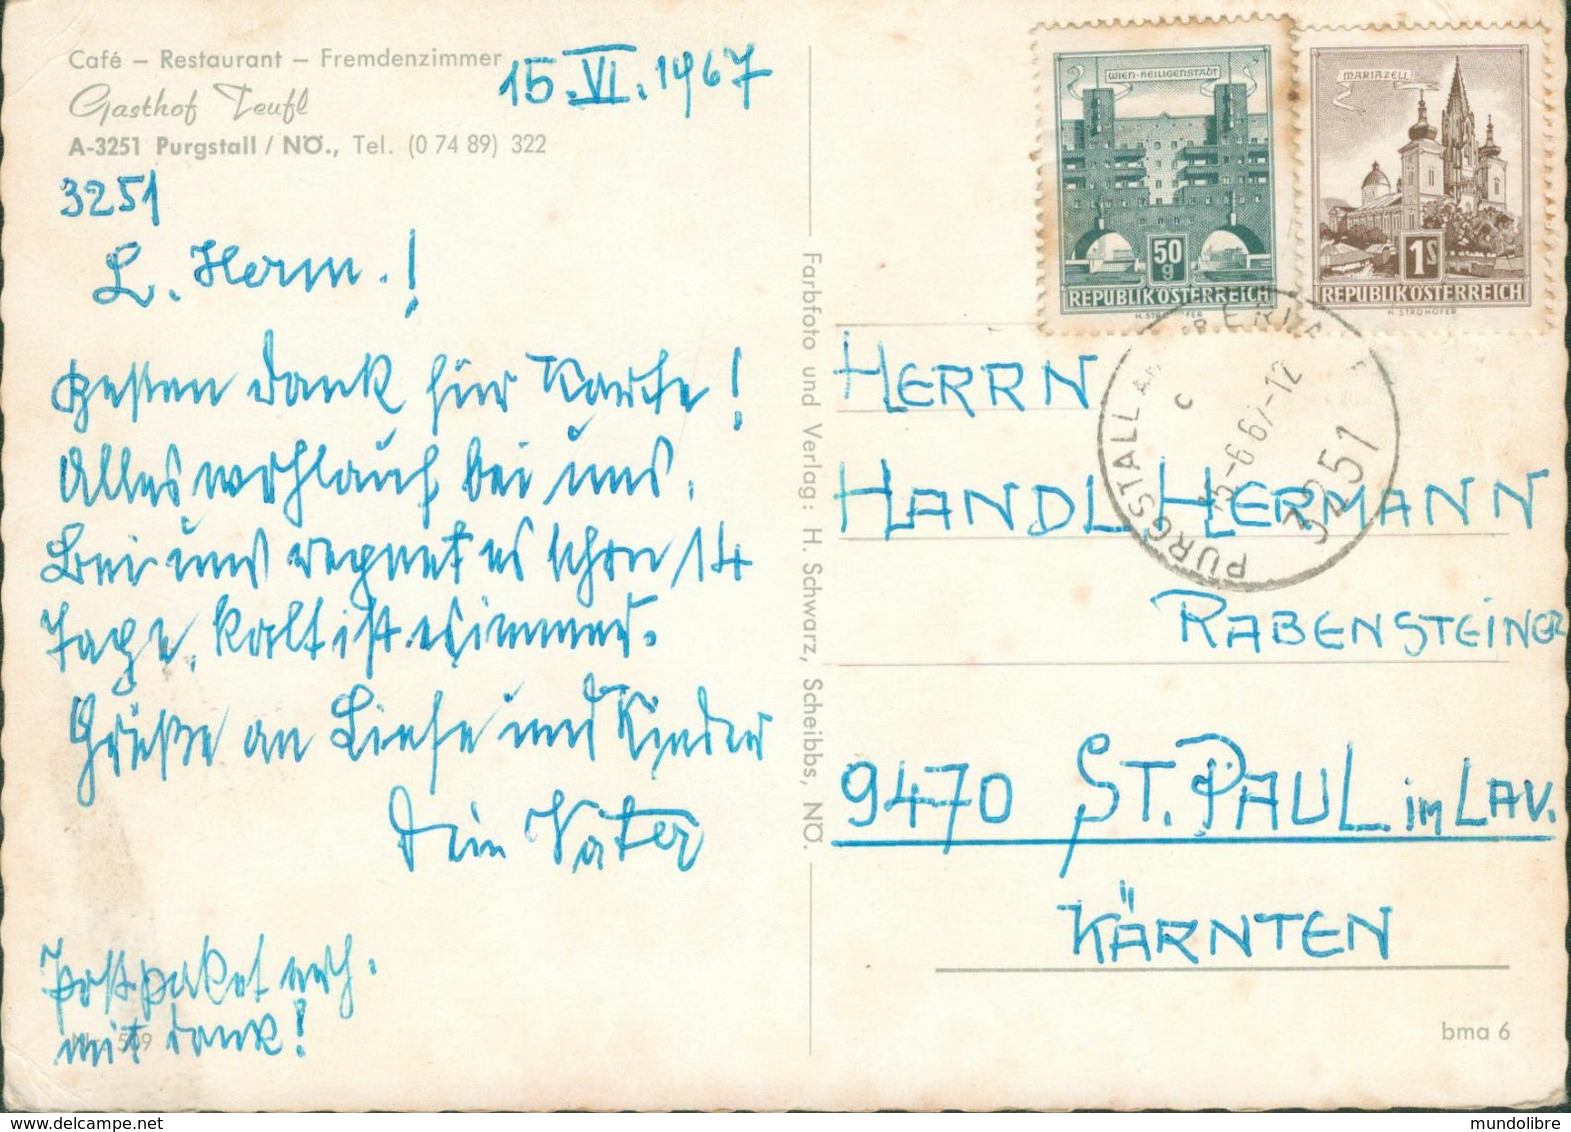 Café – Restaurant – Fremdenzimmer
Gasthof Teufl
A-3251 Purgstall / NÖ., Tel. (0 74 89) 322
15.VI.1967
3251
L. Herm.!
Besten Dank für Karte!
Alles wohlauf bei uns.
Bei uns regnet es schon 14
Tage, kalt ist es immer.
Grüße an Liese und Kinder
Dein Vater
Postpaket erh.
mit Dank!
509
Farbfoto und Verlag: H. Schwarz, Scheibbs, NÖ.
WIEN-HEILIGENSTADT
50 g
REPUBLIK ÖSTERREICH
H. STROHOFER
MARIAZELL
1S
REPUBLIK ÖSTERREICH
H. STROHOFER
PURGSTALL A
15-6 67-12
c
3251
HERRN
HANDL HERMANN
RABENSTEINER
9470 ST. PAUL im LAV.
KÄRNTEN
bma 6
mundolibre